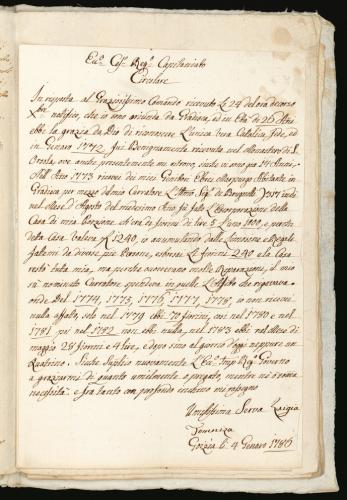 Ecc.o Ces.o Reg.o Capitaniato
Circolare
In risposta al Graziosissimo Comando ricevuto li 24 del ora decorso
Xbre notifico, che io sono oriunda da Gradisca, ed in Età di 26 Anni
ebbi la grazia da Dio di riconoscere l'unica vera Catolica fede, ed
in Genaro 1772 fui Benignamente ricevuta nel Monastero di S.
Orsola, ove anche presentemente mi ritrovo, sicche io sono già 14 Anni.
Nell' Anno 1773 ricevei dei miei Genitori Ebrei Morpurgo Abitanti in
Gradisca per mezzo del mio Curratore
nel Mese d'Agosto del medesimo Anno fu fatto
Casa di mia Porzione di fiorini di lire 5 l'uno 1000, e perche
detta Casa valeva li 1240, io acumulando dalle Limosine e Regali
fatemi da diverse pie Persone, esborsai li fiorini 240 e la Casa
restò tutta mia, ma perche occorevano molte Reparazioni, il mio
sù nominato Curratore spendeva in quelle l'Affitto che riceveva
onde Del 1774, 1775, 1776, 1777, 1778, io non ricevei
nulla affatto, solo nel 1779 ebbi 70 fiorini, così nel 1780 e nel
1781 poi nel 1782 non ebbi nulla, nel 1783 ebbi nel Mese di
maggio 28 fiorini e 4 lire, e dopo sino al giorno d'oggi neppure un
Quatrino. Sicche Suplico nuovamente l'Ecc.o Imp.l Reg.o Governo
a graziarmi di quanto umilmente ò pregato, mentre ne ò somma
necessità. e fra tanto con profondo inchino mi rassegno
Umilissima Serva Luigia
Gorizia li 4 Genaro 1786